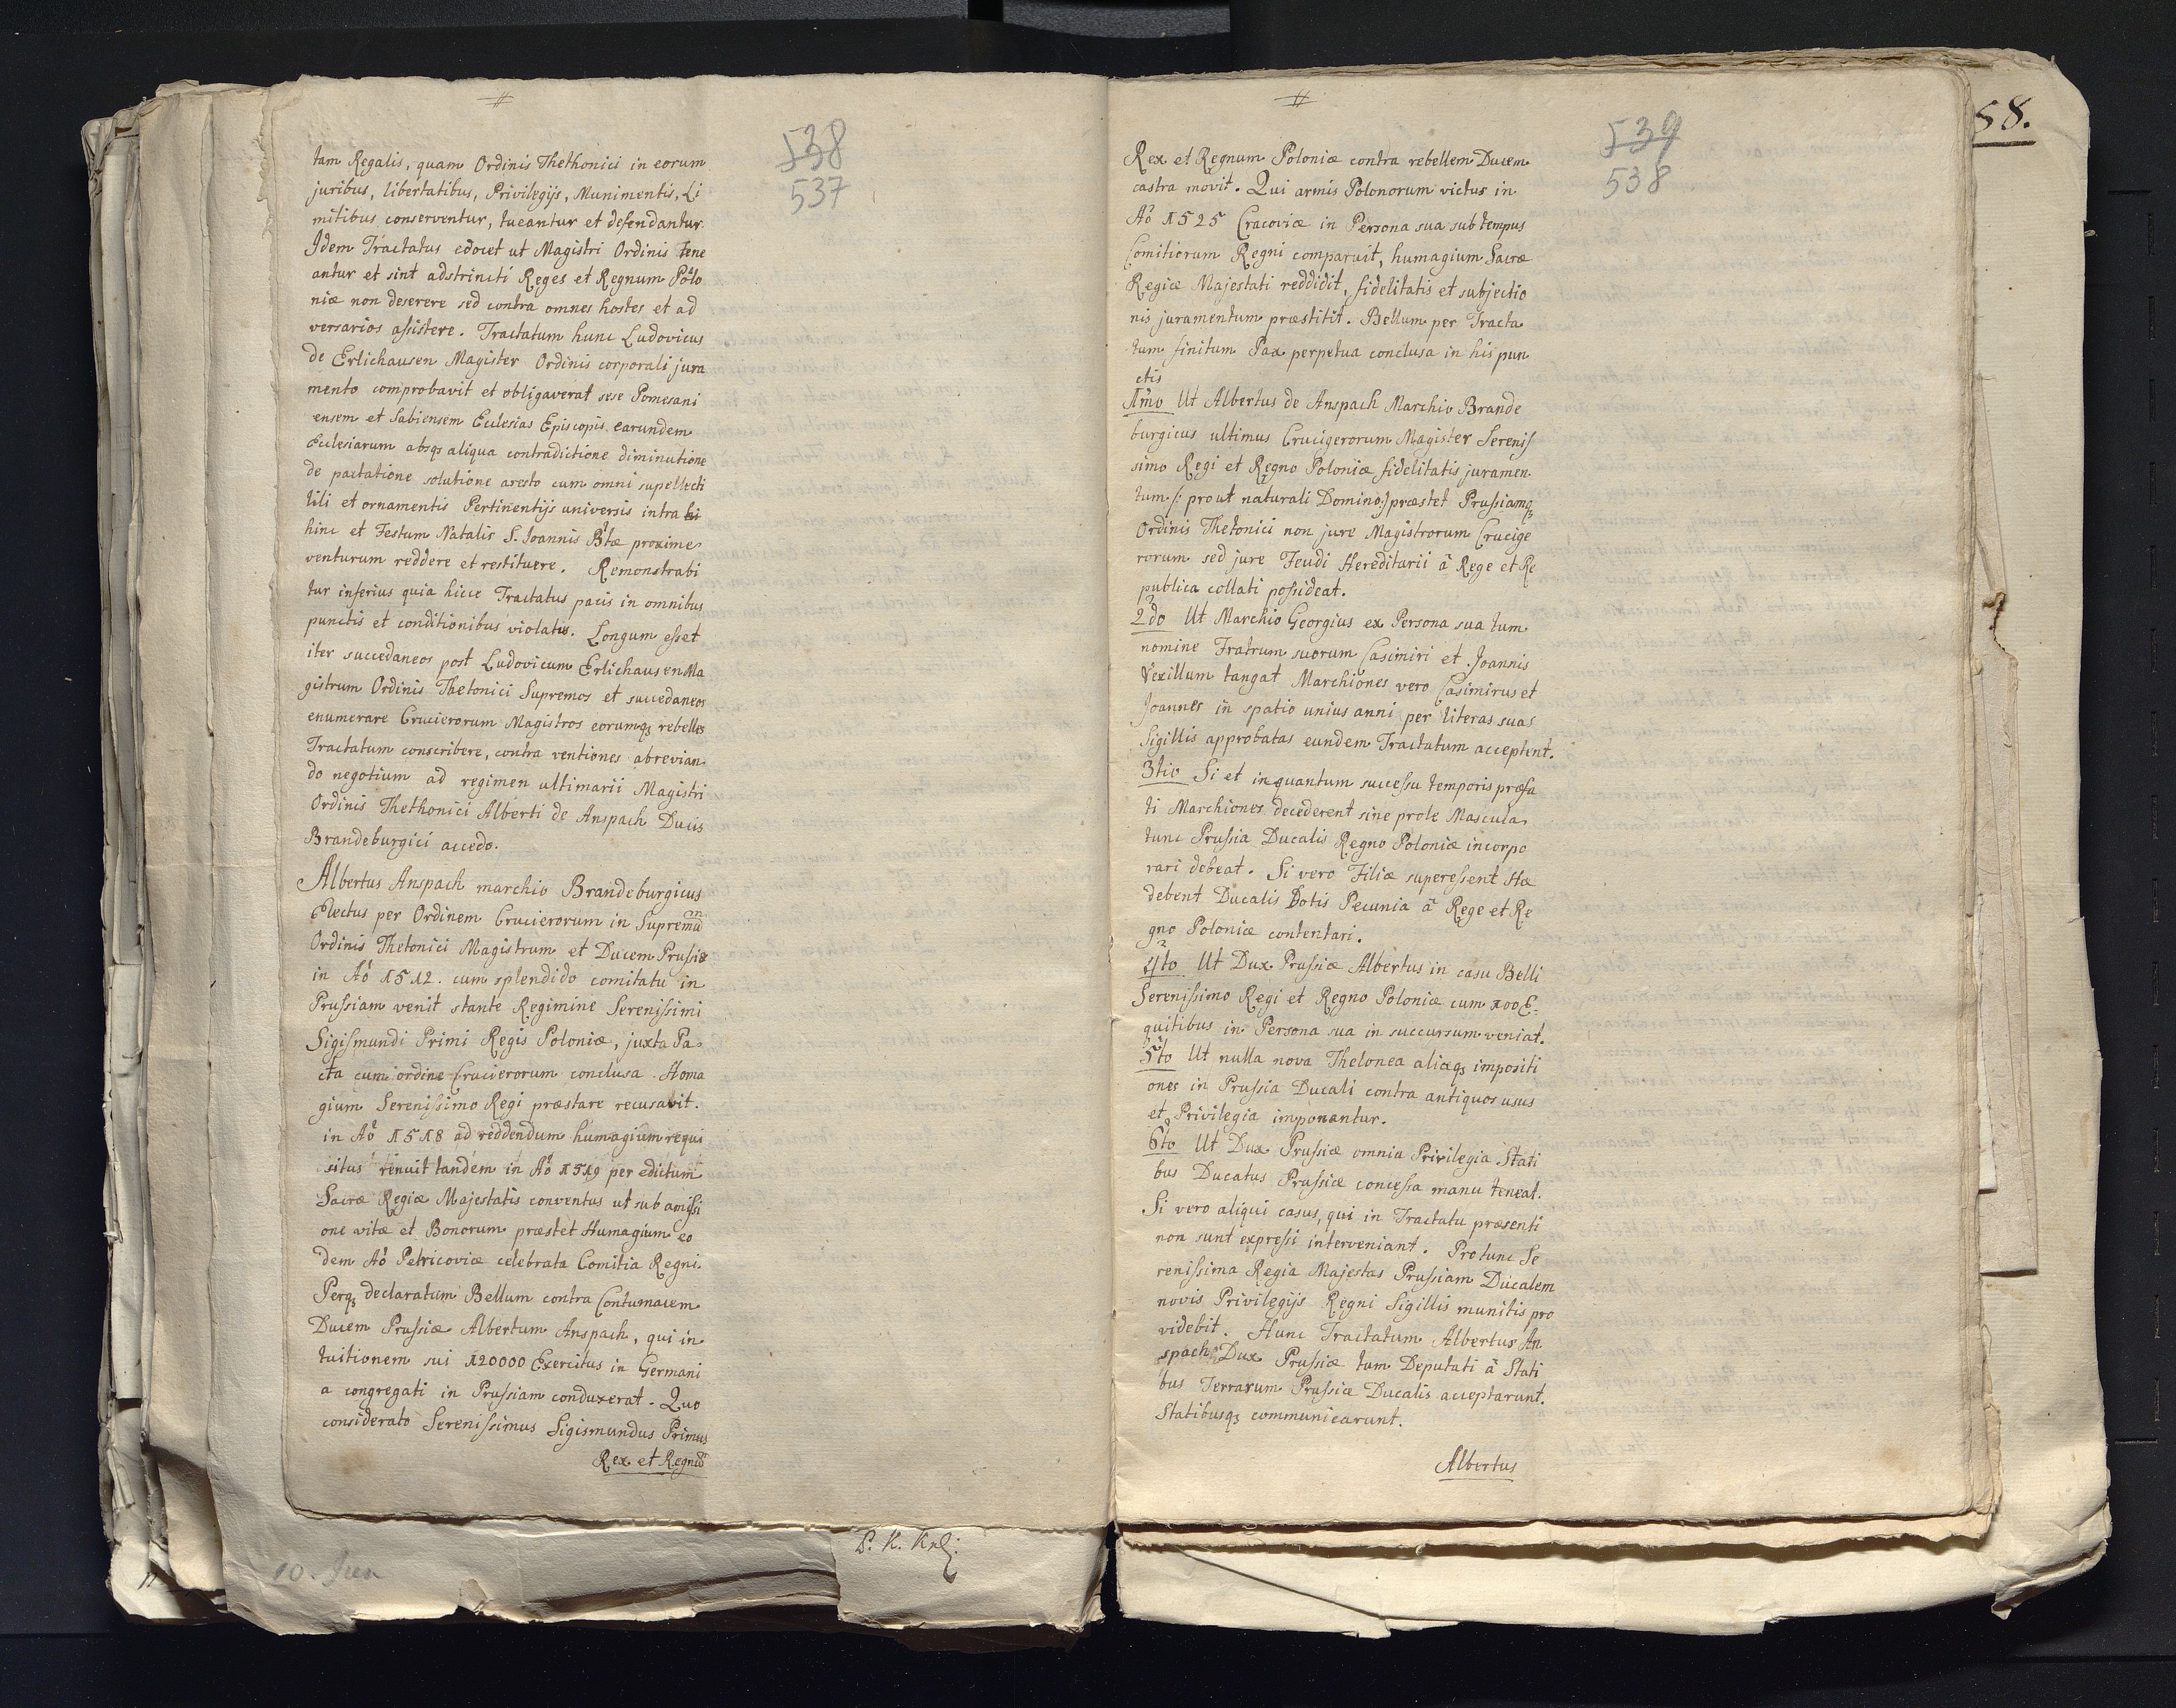 538
537
tam Regalis, quam Ordinis Thethonici in eorum
juribus, libertatibus, Privilegijs, Munimentis, Li
mitibus conserventur, tueantur et defendantur.
Idem Tractatus edocet ut Magistri Ordinis tene
antur et sint adstrincti Reges et Regnum Polo
niæ non deserere sed contra omnes hostes et ad
versarios assistere. Tractatum hunc Ludovicus
de Erlichausen Magister Ordinis corporali jura
mento comprobavit et obligaverat sese Pomesani
ensem et Sabiensem Ecclesias Episcopis earundem
Ecclesiarum absqȝ aliqua contradictione diminutione
de pactatione solutione aresto cum omni supellecti
lili et ornamentis Pertinentijs universis intra
hinc et Festum Natalis S. Joannis Btæ proxime
venturum reddere et restituere. Remonstrabi
tur inferius quia hicce Tractatus pacis in omnibus
punctis et conditionibus violatus. Longum esset
iter succedaneos post Ludovicum Erlichausen Ma
gistrum Ordinis Thetonici Supremos et succedaneos
enumerare Crucierorum Magistros eorumqȝ rebelles
Tractatum conscribere, contra ventiones abrevian
do negotium ad regimen ultimarii Magistri
Ordinis Thethonici Alberti de Anspach Ducis
Brandeburgici accedo.
Albertus Anspach marchio Brandeburgicus
Electus per Ordinem Crucierorum in Supremum
Ordinis Thetonici Magistrum et Ducem Prussiæ
in Aő 1512. cum splendido comitatu in
Prussiam venit stante Regimine Serenissimi
Sigismundi Primi Regis Poloniæ, juxta Pa
cta cum ordine Crucierorum conclusa Homa
gium Serenissimo Regi præstare recusavit.
in Aő 1518 ad reddendum humagium requi
situs renuit tandem in Aő 1519 per edictum
Sacræ Regiæ Majestatis conventus ut sub amissi
one vitæ et Bonorum præstet Humagium eo
dem Aő Petricoviæ celebrata Comitia Regni.
Perqȝ declaratum Bellum contra Contumacem
Ducem Prussiæ Albertum Anspach, qui in
tuitionem sui 120000 Exercitus in Germani
a congregati in Prussiam conduxerat. Quo
considerato Serenissimus Sigismundus Primus
Rex et Regnum
10. Jun
P. K. Krl:
58.
539
538
Rex et Regnum Poloniæ contra rebellem Ducem
castra movit. Qui armis Polonorum victus in
Aő 1525 Cracoviæ in Persona sua sub tempus
Comitiorum Regni comparuit, humagium Sacræ
Regiæ Majestati reddidit, fidelitatis et subjectio
nis juramentum præstitit. Bellum per Tracta
tum finitum Pax perpetua conclusa in his pun
ctis
1mo Ut Albertus de Anspach Marchio Brande
burgicus ultimus Crucigerorum Magister Serenis
simo Regi et Regno Poloniæ fidelitatis juramen
tum /: prout naturali Domino :/ præstet Prussiamqȝ
Ordinis Thetonici non jure Magistrorum Crucige
rorum sed jure Feudi Hereditarii â Rege et Re
publica collati possideat.
2do Ut Marchio Georgius ex Persona sua tum
nomine Fratrum suorum Casimiri et Joannis
Vexillum tangat Marchiones vero Casimirus et
Joannes in spatio unius anni per literas suas
Sigillis approbatas eundem Tractatum acceptent.
3tio Si et inquantum successu temporis præfa
ti Marchiones decederent sine prole Mascula
tunc Prussia Ducalis Regno Poloniæ incorpo
rari debeat. Si vero Filiæ superessent Hæ
debent Ducalis Dotis Pecunia â Rege et Re
gno Poloniæ contentari.
4to Ut Dux Prussiæ Albertus in casu Belli
Serenissimo Regi et Regno Poloniæ cum 100 E=
quitibus in Persona sua in succursum veniat.
5to Ut nulla nova Thelonea aliaqȝ impositi
ones in Prussia Ducali contra antiquos usus
et Privilegia imponantur.
6to Ut Dux Prussiæ omnia Privilegia Stati
bus Ducatus Prussiæ concessa manu teneat.
Si vero aliqui casus, qui in Tractatu præsenti
non sunt expressi interveniant. Pro tunc Se
renissima Regia Majestas Prussiam Ducalem
novis Privilegijs Regni Sigillis munitis pro
videbit. Hunc Tractatum Albertus An
spach Dux Prussiæ tum Deputati â Stati
bus Terrarum Prussiæ Ducalis acceptarunt.
Statibusqȝ communicarunt.
Albertus